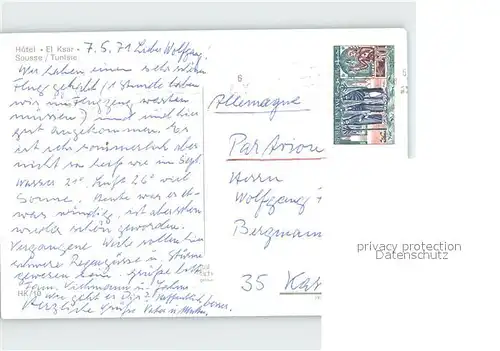 Hôtel • El Ksar •
Sousse / Tunisie
7.5.71 Lieber Wolfgang!
Wir haben einen sehr schönen
Flug gehabt (1 Stunde haben
wir im Flugzeug warten
müssen) und sind hier
gut angekommen. Es
ist sehr sommerlich aber
nicht so heiß wie im Sept.
Wasser 21° Luft 26° viel
Sonne. Heute war es et-
was windig, ist aber schon
wieder schön geworden.
Vergangene Woche sollen hier
schwere Regengüsse u. Stürme
gewesen sein. Grüße bitte
Fam. u.
geht es Dir? Hoffentlich besser.
Herzliche Grüße Vater u.
HK/19
Allemagne
Par Avion
Herrn
Wolfgang
Bergmann
35 Kas
privacy protection
Datenschutz